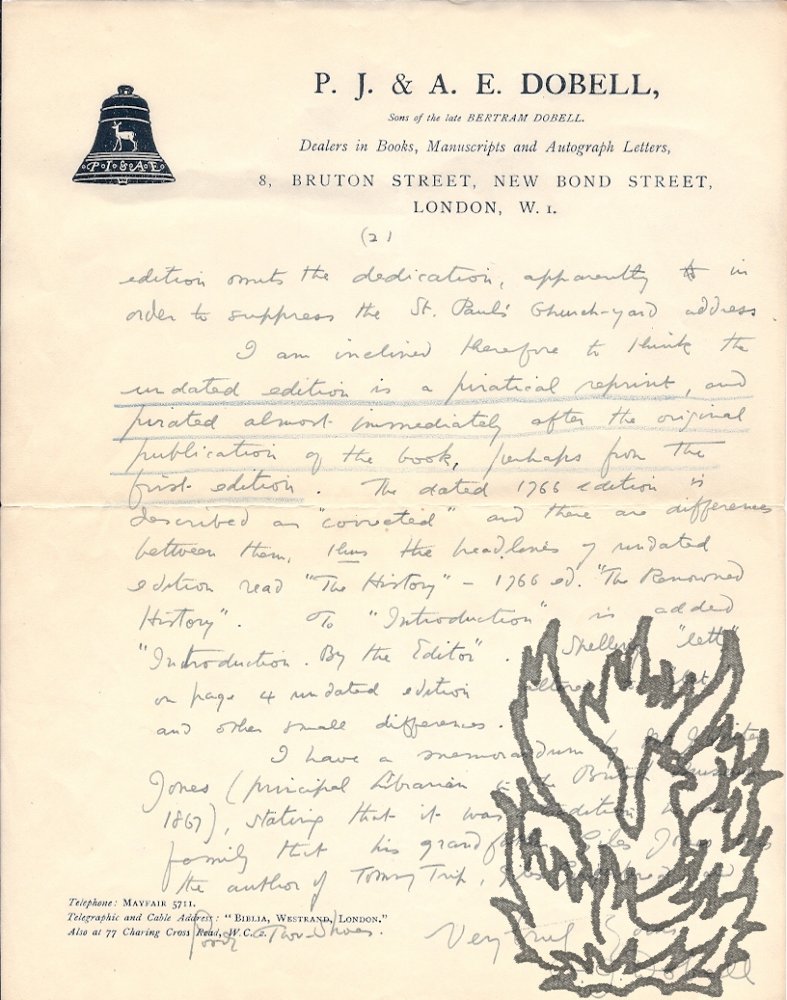 P. J. & A. E. DOBELL,
Sons of the late BERTRAM DOBELL.
Dealers in Books, Manuscripts and Autograph Letters,
8, BRUTON STREET, NEW BOND STREET,
LONDON, W. 1.
P·J·&·A·E
(2)
edition omits the dedication, apparently in
order to suppress the St. Paul's Church-yard address.
I am inclined therefore to think the
undated edition is a piratical reprint, and
pirated almost immediately after the original
publication of the book, perhaps from the
first edition. The dated 1766 edition is
described as "corrected" and there are differences
between them, thus the headlines of undated
edition read "The History" - 1766 ed. "The Renowned
History". To "Introduction" is added
"Introduction. By the Editor". Spelling
on page 4 undated edition
and other small differences.
I have a memorandum by
Jones (principal Librarian the British Museum
1867), stating that it was
family that his grandfather Giles Jones was
the author of Tommy Trip, Giles
Goody Two-Shoes. Very truly Yours
Dobell
Telephone: MAYFAIR 5711.
Telegraphic and Cable Address: "BIBLIA, WESTRAND, LONDON."
Also at 77 Charing Cross Road, W.C.2.